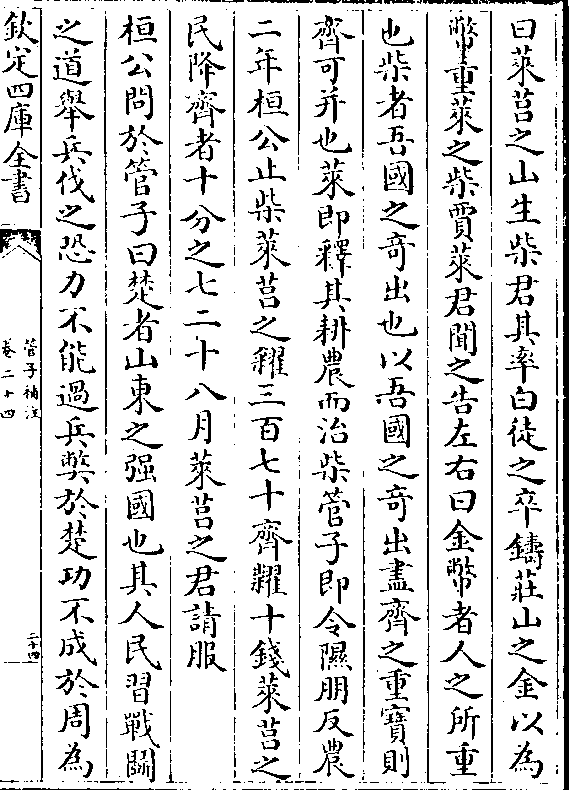 曰萊莒之山生柴君其率白徒之卒鑄莊山之金以為
幣重萊之柴賈萊君聞之告左右曰金幣者人之所重
也柴者吾國之竒出也以吾國之竒出盡齊之重寶則
齊可并也萊即釋其耕農而治柴管子即令隰朋反農
二年桓公止柴萊莒之糴三百七十齊糶十錢萊莒之
民降齊者十分之七二十八月萊莒之君請服
桓公問於管子曰楚者山東之强國也其人民習戰鬭
之道舉兵伐之恐力不能過兵弊於楚功不成於周為
欽定四庫全書
管子補注
卷二十四
二十四